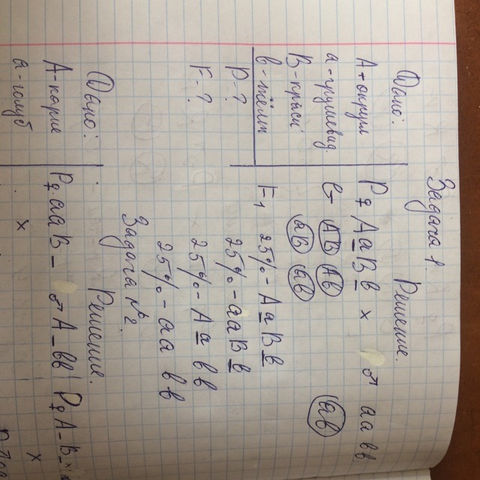 Задача 1.
Дано:
А-округл
а-грушевид.
В-красн
в-жёлт
Р-?
F-?
Решение.
Р♀ АаВв × ♂ аавв
G АВ Ав
аВ ав
ав
F₁ 25%-АаВв
25%-ааВв
25%-Аавв
25%-аавв
Задача №2.
Дано:
А-карие
а-голуб
Решение.
Р♀ ааВ– ♂ А–вв Р♀ А–В–
×
×